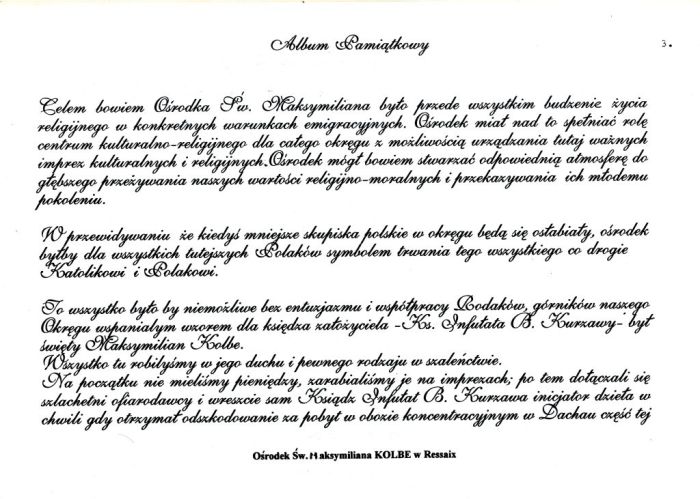 Album Pamiątkowy
3.
Celem bowiem Ośrodka Św. Maksymiliana było przede wszystkim budzenie życia
religijnego w konkretnych warunkach emigracyjnych. Ośrodek miał nad to spełniać rolę
centrum kulturalno-religijnego dla całego okręgu z możliwością urządzania tutaj ważnych
imprez kulturalnych i religijnych.Ośrodek mógł bowiem stwarzać odpowiednią atmosferę do
głębszego przeżywania naszych wartości religijno-moralnych i przekazywania ich młodemu
pokoleniu.
W przewidywaniu że kiedyś mniejsze skupiska polskie w okręgu będą się osłabiały, ośrodek
byłby dla wszystkich tutejszych Polaków symbolem trwania tego wszystkiego co drogie
Katolikowi i Polakowi.
To wszystko było by niemożliwe bez entuzjazmu i współpracy Rodaków, górników naszego
Okręgu wspaniałym wzorem dla księdza założyciela -Ks. Infułata B. Kurzawy- był
święty Maksymilian Kolbe.
Wszystko tu robilyśmy w jego duchu i pewnego rodzaju w szaleństwie.
Na początku nie mieliśmy pieniędzy, zarabialiśmy je na imprezach; po tem dołączali się
szlachetni ofiarodawcy i wreszcie sam Ksiądz Infułat B. Kurzawa inicjator dzieła w
chwili gdy otrzymał odszkodowanie za pobyt w obozie koncentracyjnym w Dachau część tej
Ośrodek Św. Maksymiliana KOLBE w Ressaix